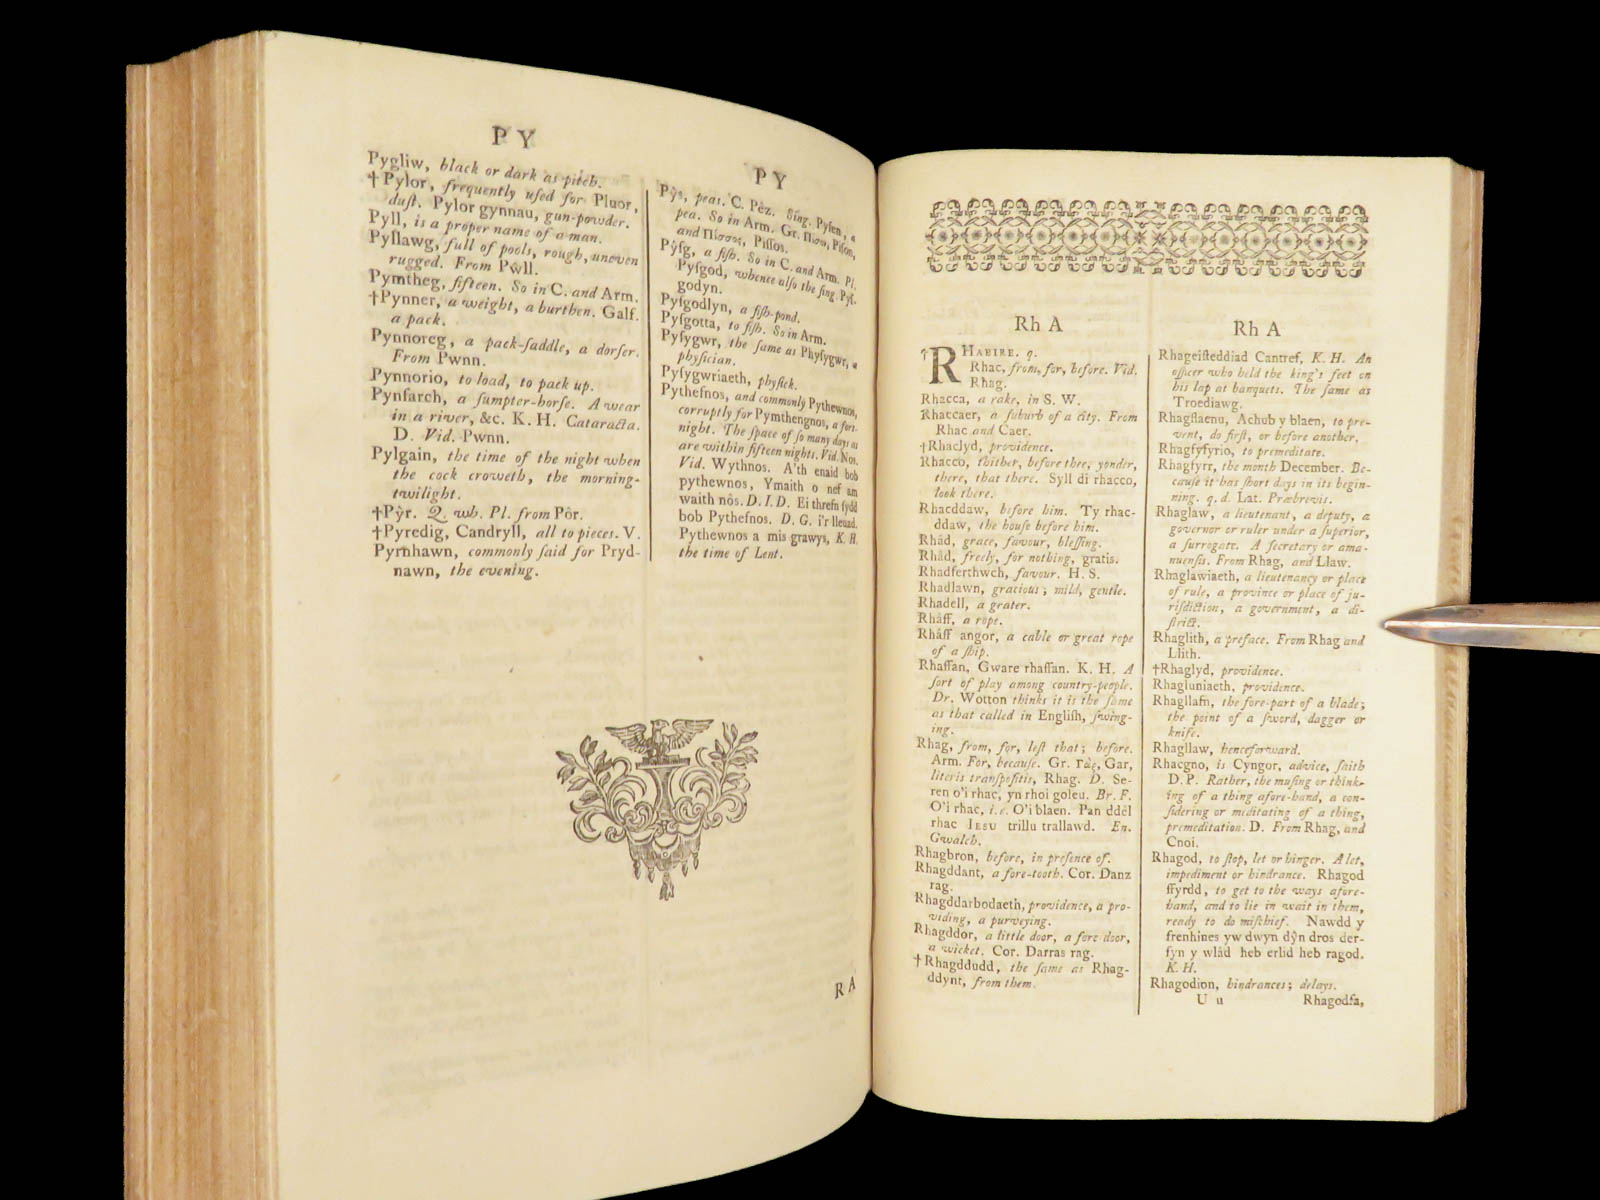 PY
Pygliw, black or dark as pitch.
†Pylor, frequently uſed for Pluor,
duſt. Pylor gynnau, gun-powder.
Pyll, is a proper name of a man.
Pyllawg, full of pools, rough, uneven
rugged. From Pŵll.
Pymtheg, fifteen. So in C. and Arm.
†Pynner, a weight, a burthen. Galf.
a pack.
Pynnoreg, a pack-ſaddle, a dorſer.
From Pwnn.
Pynnorio, to load, to pack up.
Pynfarch, a ſumpter-horſe. A wear
in a river, &c. K. H. Cataracta.
D. Vid. Pwnn.
Pylgain, the time of the night when
the cock croweth, the morning-
twilight.
†Pŷr. Q. wh. Pl. from Pôr.
†Pyredig, Candryll, all to pieces. V.
Pyrnhawn, commonly ſaid for Pryd-
nawn, the evening.
PY
Pŷs, peas. C. Pêz. Sing. Pyſen, a
pea. So in Arm. Gr. Πίσον, Piſon,
and Πίσσος, Piſſos.
Pŷſg, a fiſh. So in C. and Arm. Pl.
Pyſgod, whence alſo the ſing. Pyſ-
godyn.
Pyſgodlyn, a fiſh-pond.
Pyſgotta, to fiſh. So in Arm.
Pyſygwr, the ſame as Phyſygwr, a
phyſician.
Pyſygwriaeth, phyſick.
Pythefnos, and commonly Pythewnos,
corruptly for Pymthengnos, a fort-
night. The ſpace of ſo many days as
are within fifteen nights. Vid. Nos.
Vid. Wythnos. A'th enaid bob
pythewnos, Ymaith o nef am
waith nôs. D. I. D. Ei threfn ſydd
bob Pythefnos. D. G. i'r lleuad.
Pythewnos a mis grawys, K. H.
the time of Lent.
RA
Rh A
†RHABIRE. q.
Rhac, from, for, before. Vid.
Rhag.
Rhacca, a rake, in S. W.
Rhaccaer, a ſuburb of a city. From
Rhac and Caer.
†Rhaclyd, providence.
Rhacco, thither, before thee, yonder,
there, that there. Syll di rhacco,
look there.
Rhacddaw, before him. Ty rhac-
ddaw, the houſe before him.
Rhâd, grace, favour, bleſſing.
Rhâd, freely, for nothing, gratis.
Rhadferthwch, favour. H. S.
Rhadlawn, gracious; mild, gentle.
Rhadell, a grater.
Rhâff, a rope.
Rhâff angor, a cable or great rope
of a ſhip.
Rhaffan, Gware rhaffan. K. H. A
ſort of play among country-people.
Dr. Wotton thinks it is the ſame
as that called in Engliſh, ſwing-
ing.
Rhag, from, for, leſt that; before.
Arm. For, becauſe. Gr. Γὰρ, Gar,
literis tranſpoſitis, Rhag. D. Se-
ren o'i rhac, yn rhoi goleu. Br. F.
O'i rhac, i. e. O'i blaen. Pan ddêl
rhac IESU trillu trallawd. En.
Gwalch.
Rhagbron, before, in preſence of.
Rhagddant, a fore-tooth. Cor. Danz
rag.
Rhagddarbodaeth, providence, a pro-
viding, a purveying.
Rhagddor, a little door, a fore-door,
a wicket. Cor. Darras rag.
†Rhagddudd, the ſame as Rhag-
ddynt, from them.
Rh A
Rhageiſteddiad Cantref, K. H. An
officer who held the king's feet on
his lap at banquets. The ſame as
Troediawg.
Rhagflaenu, Achub y blaen, to pre-
vent, do firſt, or before another.
Rhagfyfyrio, to premeditate.
Rhagfyrr, the month December. Be-
cauſe it has ſhort days in its begin-
ning. q. d. Lat. Præbrevis.
Rhaglaw, a lieutenant, a deputy, a
governor or ruler under a ſuperior,
a ſurrogate. A ſecretary or ama-
nuenſis. From Rhag, and Llaw.
Rhaglawiaeth, a lieutenancy or place
of rule, a province or place of ju-
riſdiction, a government, a di-
ſtrict.
Rhaglith, a preface. From Rhag and
Llith.
†Rhaglyd, providence.
Rhagluniaeth, providence.
Rhagllafn, the fore-part of a blade;
the point of a ſword, dagger or
knife.
Rhagllaw, henceforward.
Rhacgno, is Cyngor, advice, ſaith
D. P. Rather, the muſing or think-
ing of a thing afore-hand, a con-
ſidering or meditating of a thing,
premeditation. D. From Rhag, and
Cnoi.
Rhagod, to ſtop, let or hinger. A let,
impediment or hindrance. Rhagod
ffyrdd, to get to the ways afore-
hand, and to lie in wait in them,
ready to do miſchief. Nawdd y
frenhines yw dwyn dŷn dros der-
fyn y wlâd heb erlid heb ragod.
K. H.
Rhagodion, hindrances; delays.
U u Rhagodſa,